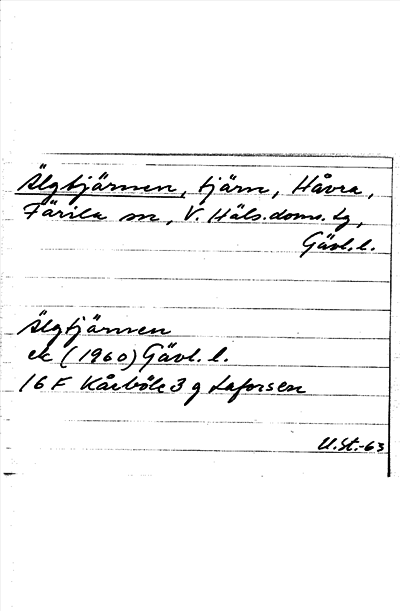 Älgtjärnen, tjärn, Håvra,
Färila sn, V. Häls. doms. tg,
Gävl. l.
Älgtjärnen
ek (1960) Gävl. l.
16 F Kårböle 3 g Laforsen
U.St.-63